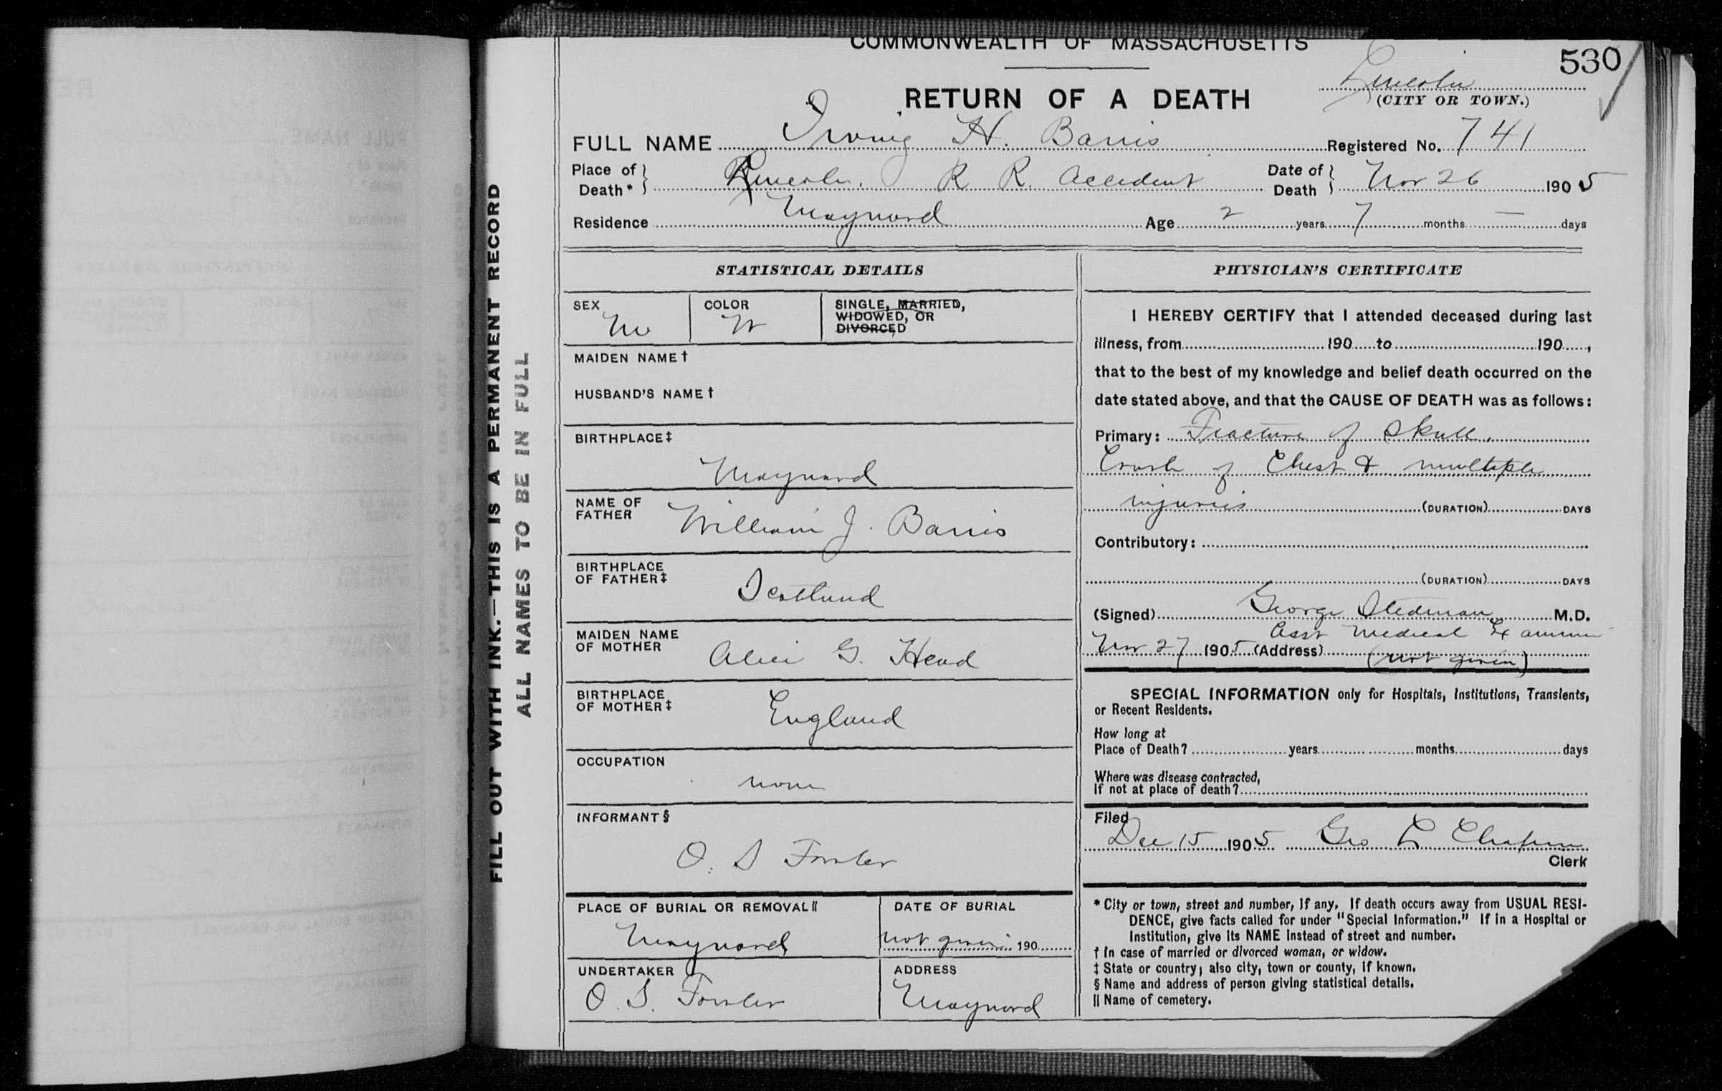 COMMONWEALTH OF MASSACHUSETTS
530
Lincoln
(CITY OR TOWN.)
RETURN OF A DEATH
FULL NAME Irving H. Barris Registered No. 741
Place of Death* Lincoln. R R. Accident Date of Death Nov 26 1905
Residence Maynard Age 2 years 7 months — days
FILL OUT WITH INK.—THIS IS A PERMANENT RECORD
ALL NAMES TO BE IN FULL
STATISTICAL DETAILS
SEX M COLOR W SINGLE, MARRIED, WIDOWED, OR DIVORCED
MAIDEN NAME †
HUSBAND'S NAME †
BIRTHPLACE ‡
Maynard
NAME OF FATHER William J. Barris
BIRTHPLACE OF FATHER ‡ Scotland
MAIDEN NAME OF MOTHER Alice G. Head
BIRTHPLACE OF MOTHER ‡ England
OCCUPATION
none
INFORMANT §
O. S Fowler
PLACE OF BURIAL OR REMOVAL || DATE OF BURIAL
Maynard not given 190
UNDERTAKER ADDRESS
O. S. Fowler Maynard
PHYSICIAN'S CERTIFICATE
I HEREBY CERTIFY that I attended deceased during last
illness, from 190 to 190 ,
that to the best of my knowledge and belief death occurred on the
date stated above, and that the CAUSE OF DEATH was as follows:
Primary: Fracture of Skull.
Crush of Chest & multiple
injuries (DURATION) DAYS
Contributory:
(DURATION) DAYS
(Signed) George Stedman M.D.
Asst Medical Examiner
Nov 27 1905 (Address) (not given)
SPECIAL INFORMATION only for Hospitals, Institutions, Transients,
or Recent Residents.
How long at
Place of Death? years months days
Where was disease contracted,
if not at place of death?
Filed
Dec 15 1905 Geo L Chapin
Clerk
* City or town, street and number, if any. If death occurs away from USUAL RESI-
DENCE, give facts called for under "Special Information." If in a Hospital or
Institution, give its NAME instead of street and number.
† In case of married or divorced woman, or widow.
‡ State or country; also city, town or county, if known.
§ Name and address of person giving statistical details.
|| Name of cemetery.